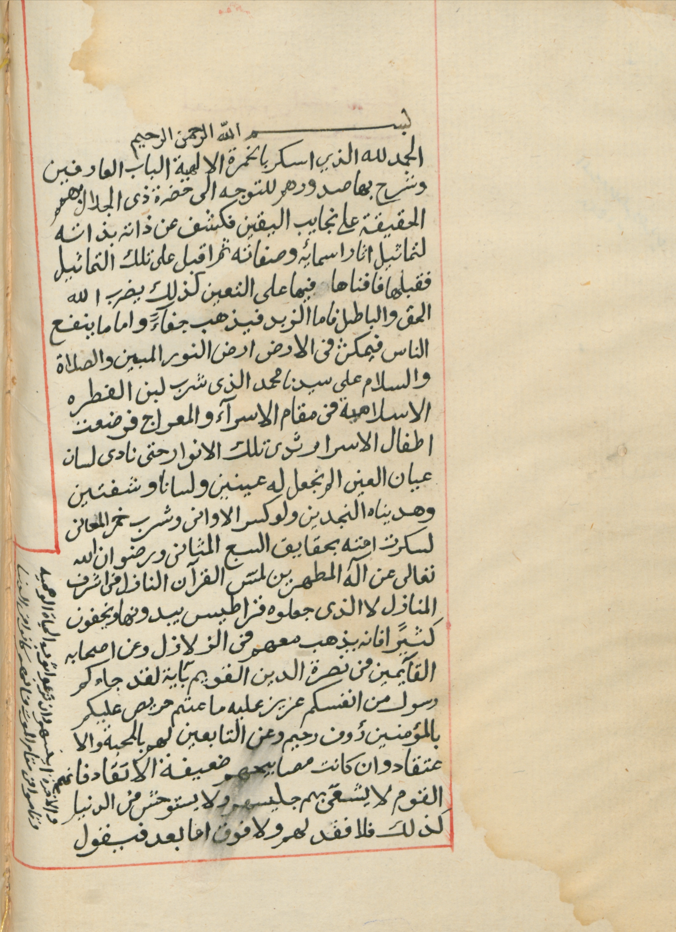 بسم الله الرحمن الرحيم
الحمد لله الذي اسكر بالخمرة الالهية الباب العارفين
وشرح بها صدورهم للتوجه الى حضرة ذى الجلال بهمم
الحقيقة على نجايب اليقين فكشف عن ذاته بذاته
لتماثيل اثار اسمائه وصفاته ثم اقبل على تلك التماثيل
فقبلها فافناها فيها على التعين كذلك يضرب الله
الحق والباطل فاما الزبد فيذهب جفاءً واما ما ينفع
الناس فيمكث فى الارض ارض النور المبين والصلاة
والسلام على سيدنا محمد الذى شرب لبن الفطره
الاسلامية فى مقام الاسرآء والمعراج فرضعت
اطفال الاسرار ثدى تلك الانوار حتى نادى لسان
عيان العين الم نجعل له عينين ولسانا وشفتين
وهديناه النجدين ولو كسر الاوانى وشرب خمر المعانى
لسكرت امته بحقايق السبع المثانى ورضوان الله
تعالى عن اله المطهرين لمس القرآن النازل فى اشرف
المنازل لا الذى جعلوه قراطيس يبدونها ويخفون
كثيرًا فانه يذهب معهم فى الزلازل وعن اصحابه
القآئمين فى نصرة الدين القويم بآية لقد جاءكم
رسول من انفسكم عزيز عليه ما عنتم حريص عليكم
بالمؤمنين رؤف رحيم وعن التابعين لهم بالمحبة والا
عتقاد وان كانت مصابيحهم ضعيفة الاتقاد فانهم
القوم لا يشقى بهم جليسهم ولا يستوحش من الدنيا
كذلك فلا فقد لهم ولا فوت اما بعد فيقول